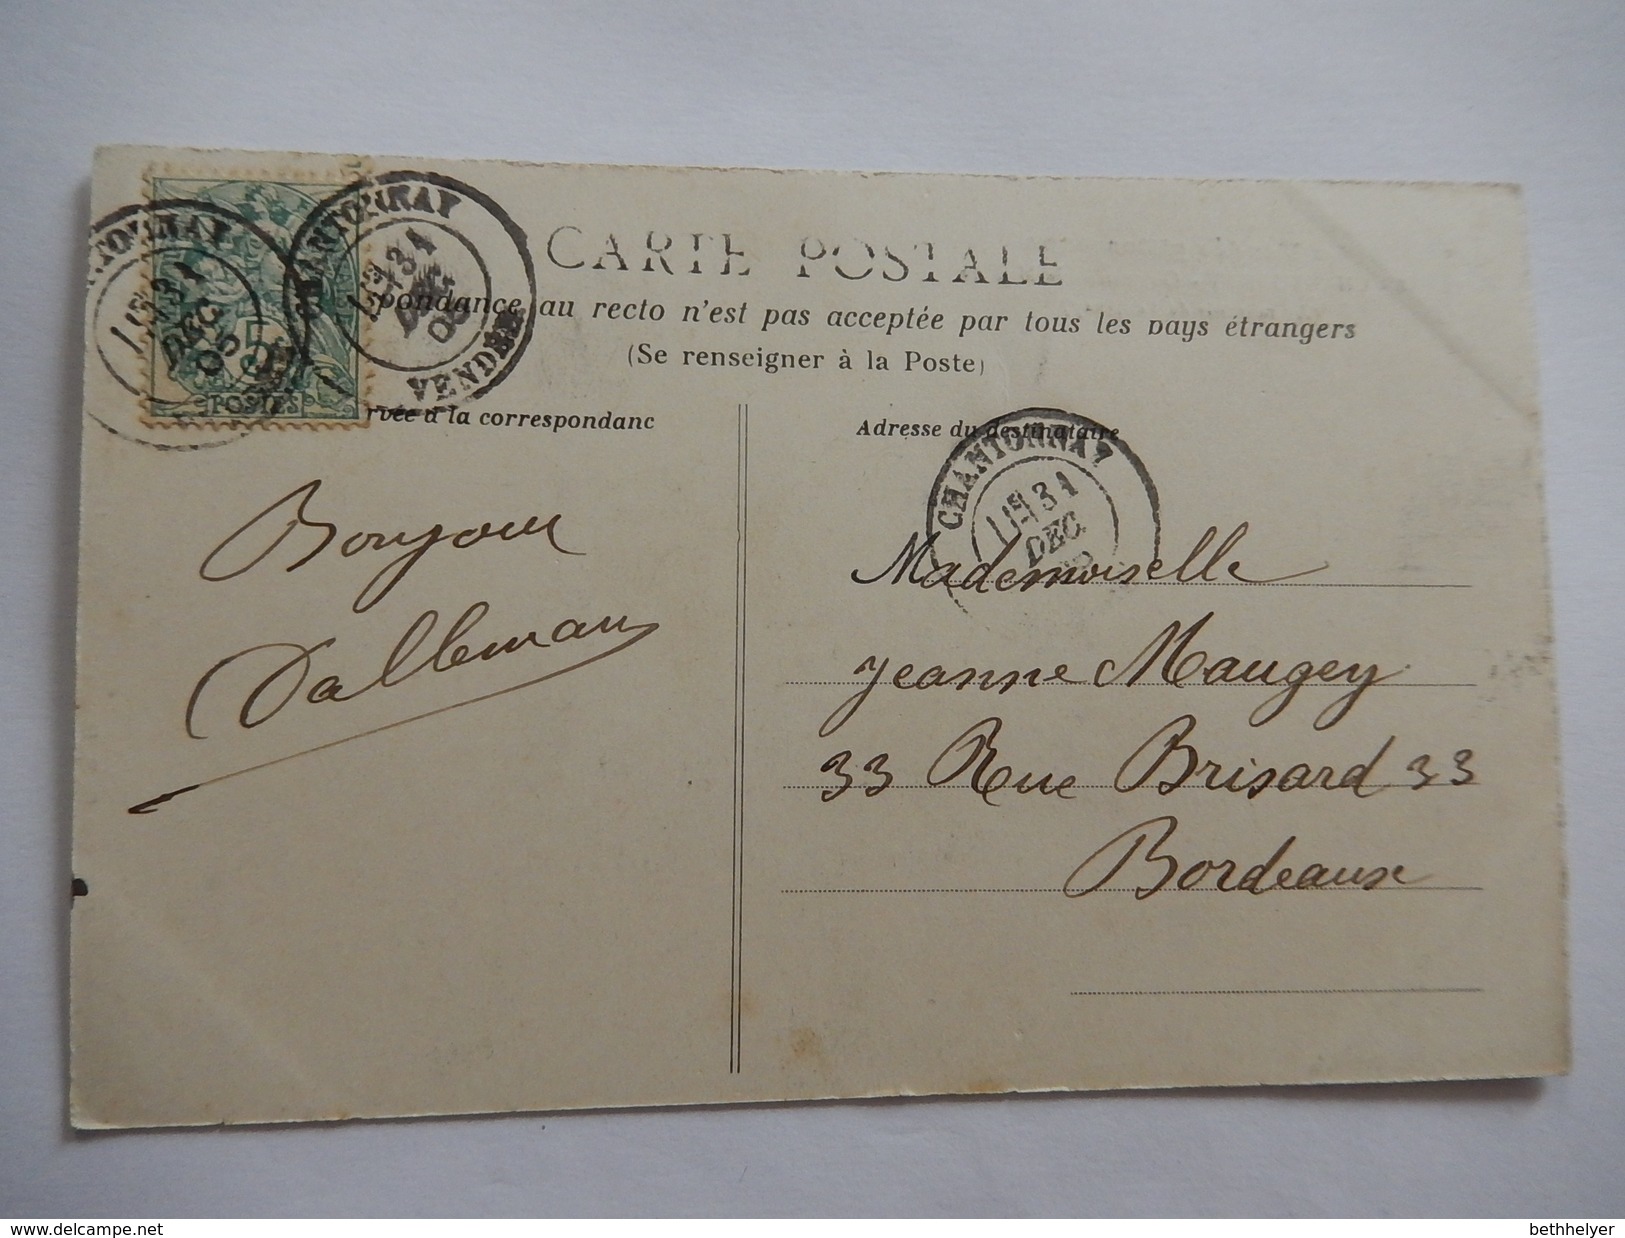 CARTE POSTALE
pondance au recto n'est pas acceptée par tous les pays étrangers
(Se renseigner à la Poste)
rvée à la correspondanc
Adresse du destinataire
5
POSTES
CHANTONNAY
31
DEC
05
VENDÉE
CHANTONNAY
31
DEC
Bonjour
Dalleman
Mademoiselle
Jeanne Maugey
33 Rue Brisard 33
Bordeaux
www.delcampe.net
bethhelyer